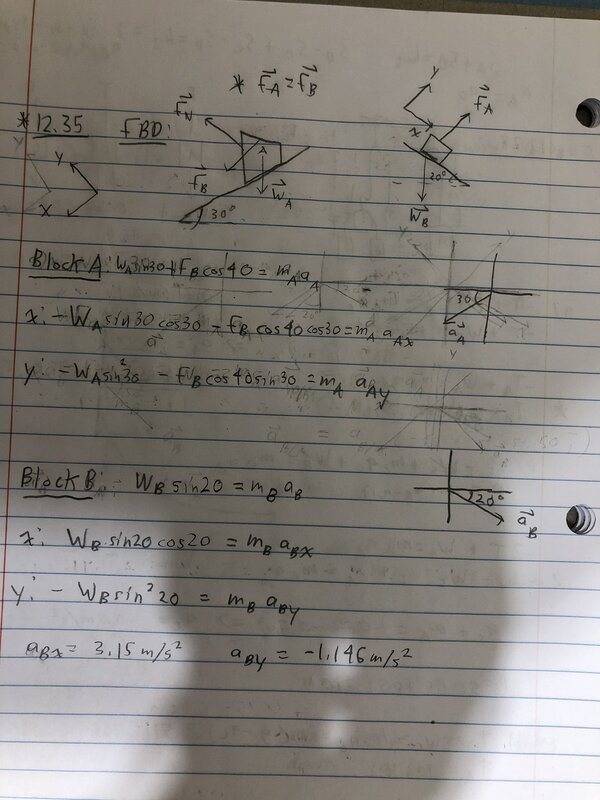 * f⃗_A = f⃗_B
*12.35 FBD:
y x
f⃗_N A f⃗_B W⃗_A 30°
y x f⃗_A 20° W⃗_B
Block A: W_A sin30 + f_B cos40 = m_A a_A
30 a⃗_A
x: -W_A sin30 cos30 - f_B cos40 cos30 = m_A a_Ax
y: -W_A sin²30 - f_B cos40 sin30 = m_A a_Ay
Block B: - W_B sin20 = m_B a_B
20° a⃗_B
x: W_B sin20 cos20 = m_B a_Bx
y: - W_B sin²20 = m_B a_By
a_Bx = 3.15 m/s² a_By = -1.146 m/s²